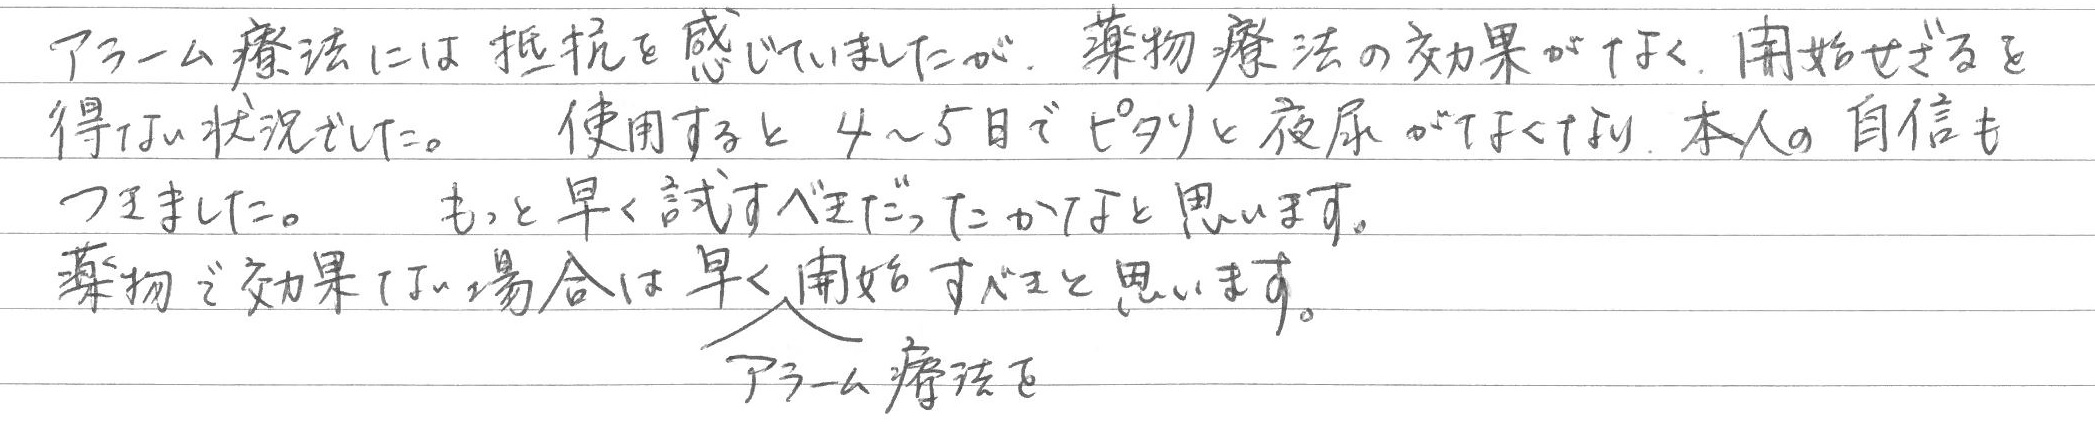 アラーム療法には抵抗を感じていましたが、薬物療法の効果がなく、開始せざるを
得ない状況でした。 使用すると4～5日でピタリと夜尿がなくなり、本人の自信も
つきました。 もっと早く試すべきだったかなと思います。
薬物で効果ない場合は早く開始すべきと思います。
アラーム療法を